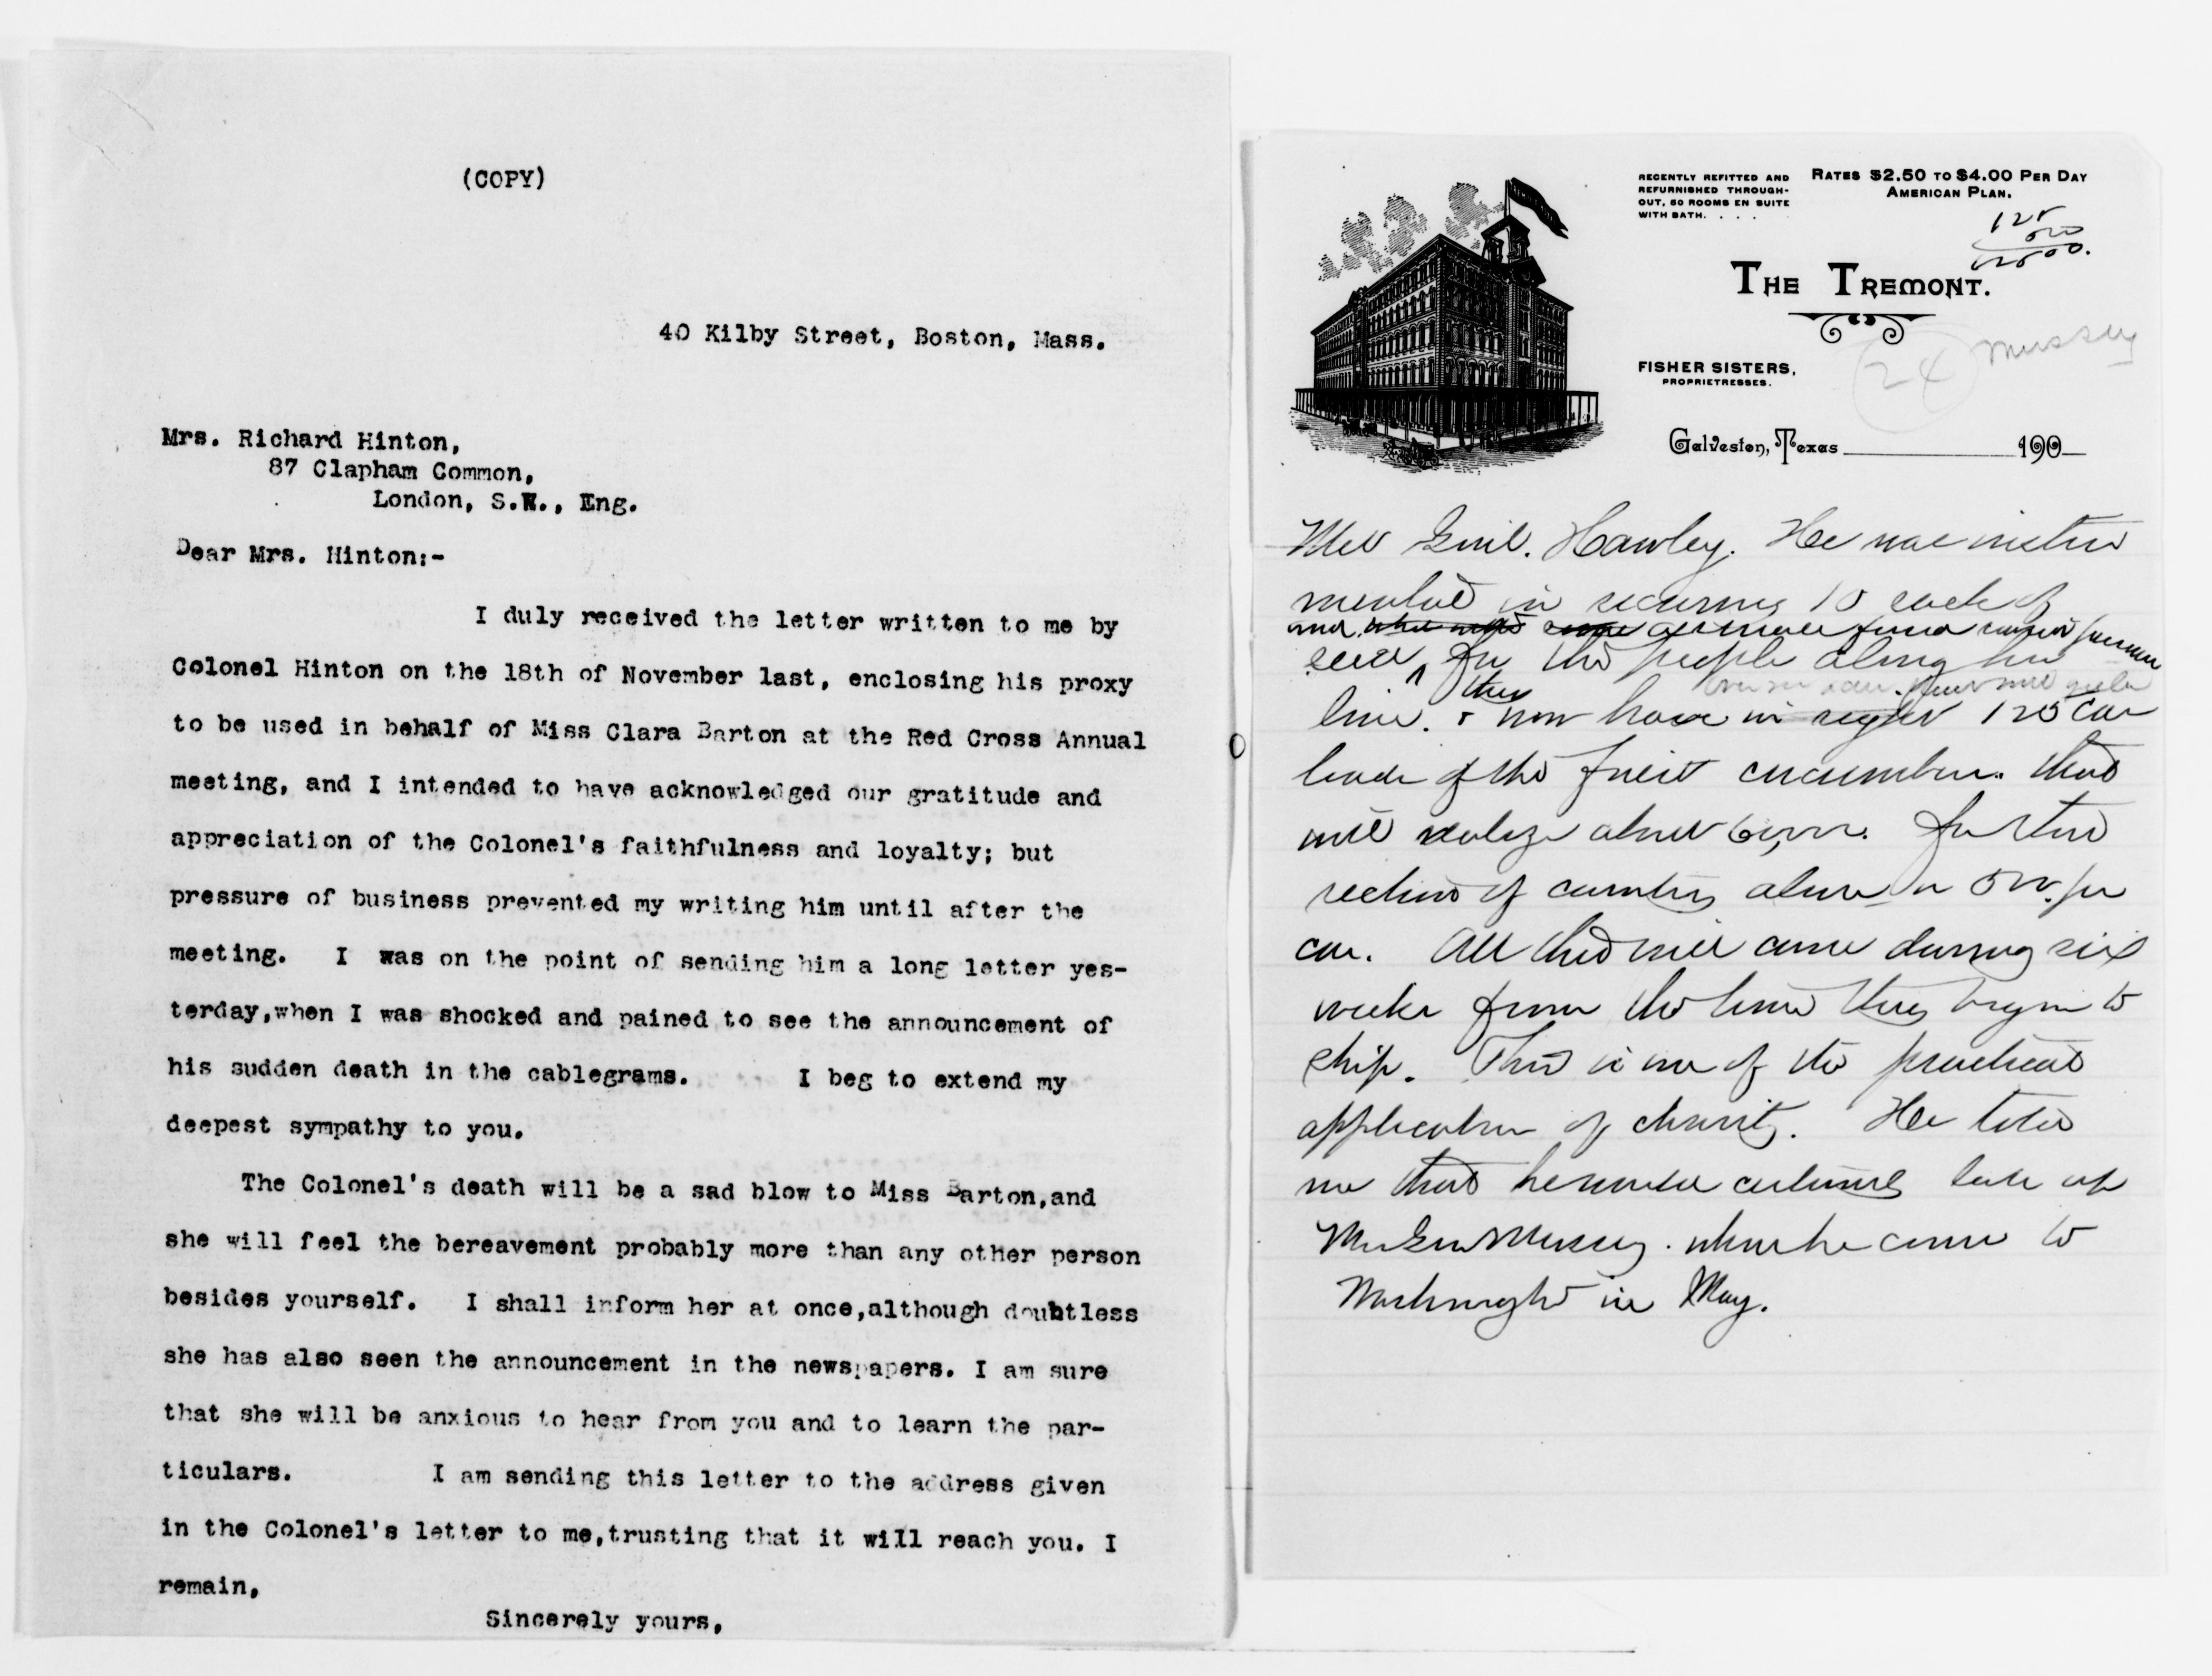 (COPY)
40 Kilby Street, Boston, Mass.
Mrs. Richard Hinton,
87 Clapham Common,
London, S.W., Eng.
Dear Mrs. Hinton:-
I duly received the letter written to me by
Colonel Hinton on the 18th of November last, enclosing his proxy
to be used in behalf of Miss Clara Barton at the Red Cross Annual
meeting, and I intended to have acknowledged our gratitude and
appreciation of the Colonel's faithfulness and loyalty; but
pressure of business prevented my writing him until after the
meeting. I was on the point of sending him a long letter yes-
terday,when I was shocked and pained to see the announcement of
his sudden death in the cablegrams. I beg to extend my
deepest sympathy to you.
The Colonel's death will be a sad blow to Miss Barton,and
she will feel the bereavement probably more than any other person
besides yourself. I shall inform her at once,although doubtless
she has also seen the announcement in the newspapers. I am sure
that she will be anxious to hear from you and to learn the par-
ticulars. I am sending this letter to the address given
in the Colonel's letter to me,trusting that it will reach you. I
remain,
Sincerely yours,
RECENTLY REFITTED AND
REFURNISHED THROUGH-
OUT, 50 ROOMS EN SUITE
WITH BATH. . . .
RATES $2.50 TO $4.00 PER DAY
AMERICAN PLAN.
125
500
62500.
THE TREMONT.
24 Mussey
FISHER SISTERS,
PROPRIETRESSES.
Galveston, Texas 190
Met Genl. Hawley. He was instru
mental in securing 10 sack of
and
seed for the people along his
line. & they now have in 125 car
loads of the finest cucumbers. that
will realize about for this
section of country about 500. per
car. All this will come during six
weeks from the time they begin to
ship. This is one of the practical
application of charity. He told
me that he would certainly look up
Mrs Gen Mussey. when he came to
Washington in May.